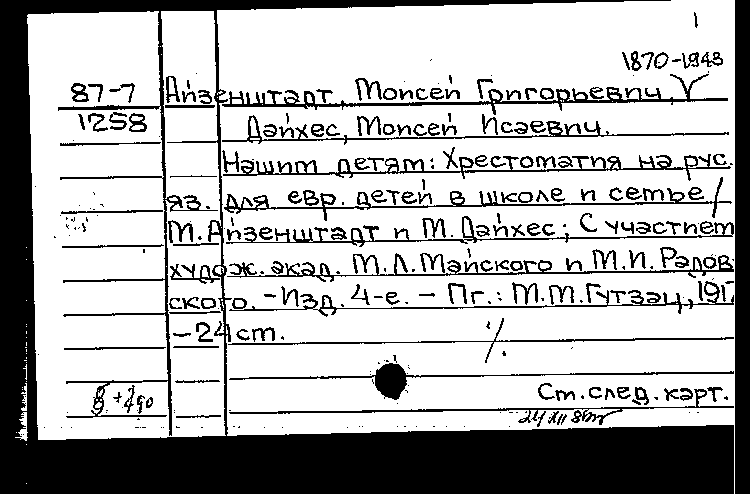 1
1870-1943
87-7 Айзенштадт, Моисей Григорьевич,
1258 Дайхес, Моисей Исаевич.
Нашим детям: Хрестоматия на рус.
яз. для евр. детей в школе и семье /
М. Айзенштадт и М. Дайхес; С участием
худож. акад. М.Л. Майского и М.И. Радов-
ского. - Изд. 4-е. - Пг.: М.М. Гутзац, 1917
- 24 ст.
См. след. карт.